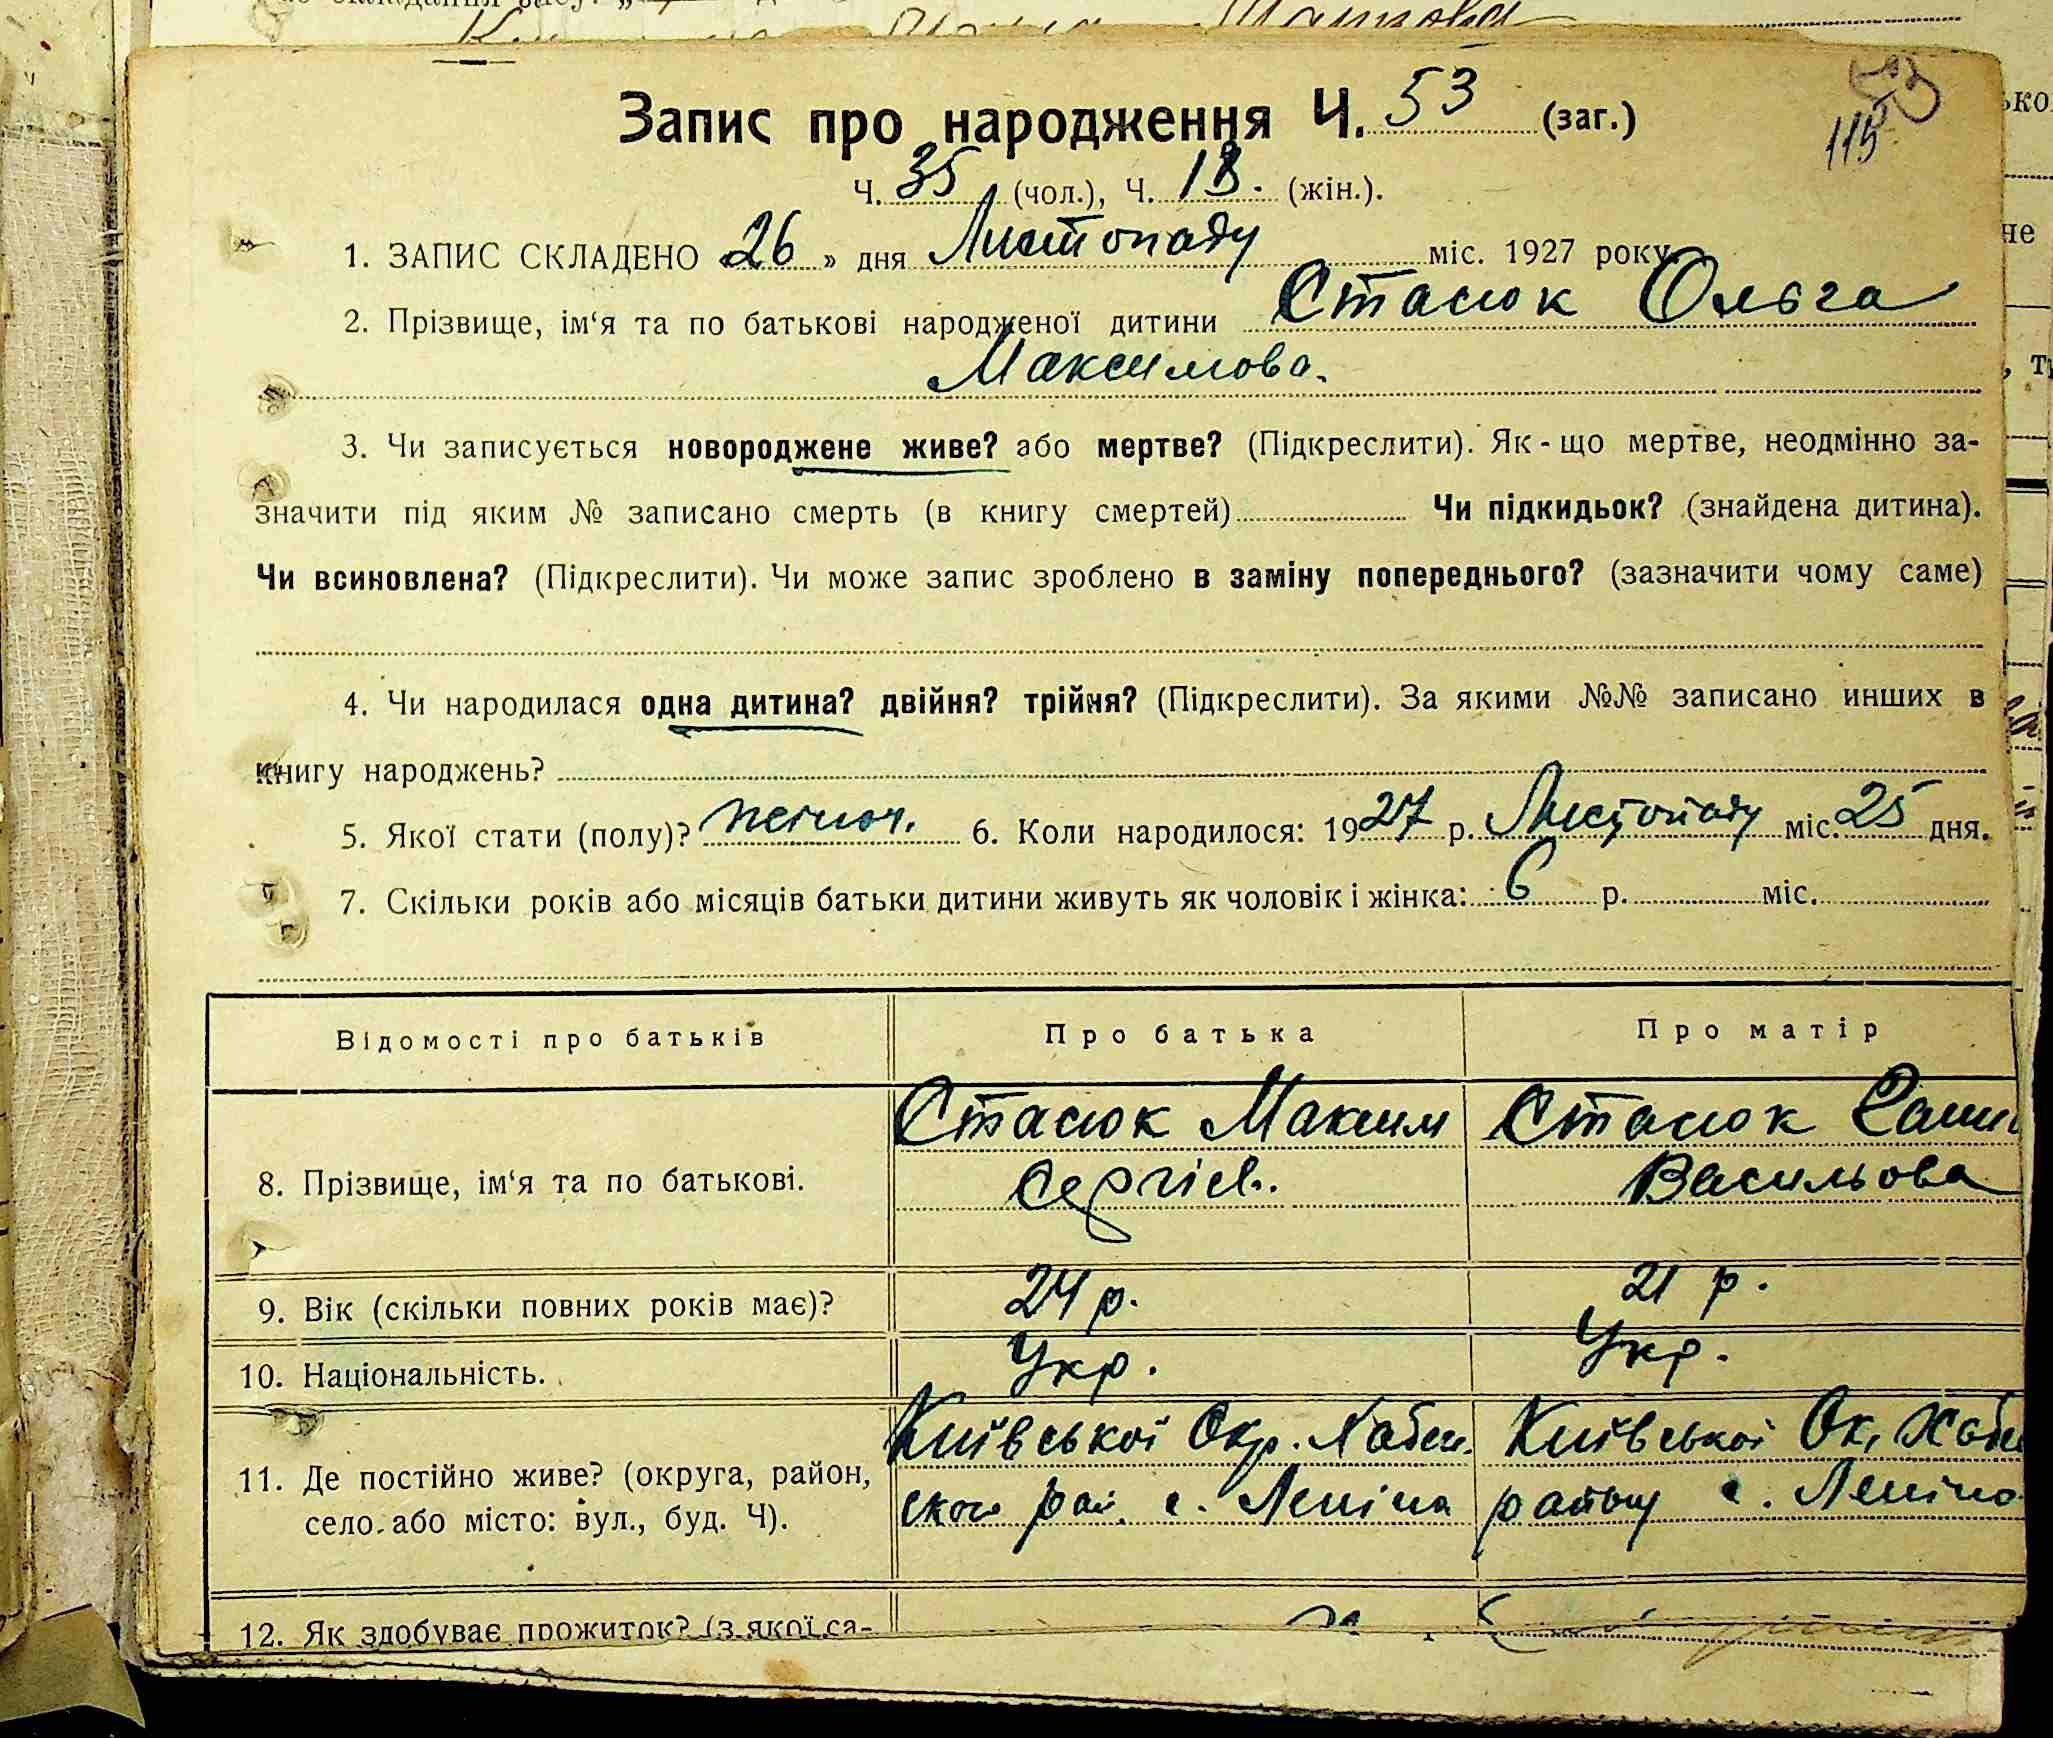 Запис про народження Ч. 53 (заг.)
53
115
Ч. 35 (чол.), Ч. 18. (жін.).
1. ЗАПИС СКЛАДЕНО «26» дня Листопаду міс. 1927 року.
2. Прізвище, ім‘я та по батькові народженої дитини Стасюк Ольга
Максимова.
3. Чи записується новороджене живе? або мертве? (Підкреслити). Як-що мертве, неодмінно за-
значити під яким № записано смерть (в книгу смертей) Чи підкидьок? (знайдена дитина).
Чи всиновлена? (Підкреслити). Чи може запис зроблено в заміну попереднього? (зазначити чому саме)
4. Чи народилася одна дитина? двійня? трійня? (Підкреслити). За якими №№ записано инших в
книгу народжень?
5. Якої стати (полу)? жіноч. 6. Коли народилося: 1927 р. Листопаду міс. 25 дня.
7. Скільки років або місяців батьки дитини живуть як чоловік і жінка: 6 р. міс.
Відомості про батьків Про батька Про матір
Стасюк Максим Стасюк
8. Прізвище, ім‘я та по батькові. Сергієв. Васильова
9. Вік (скільки повних років має)? 24 р. 21 р.
10. Національність. Укр. Укр.
Київської Окр. Хабен. Київської Ок. Хабе
11. Де постійно живе? (округа, район, ского рай. с. Леніна району с. Леніно
село або місто: вул., буд. Ч).
12. Як здобуває прожиток? (з якої са-